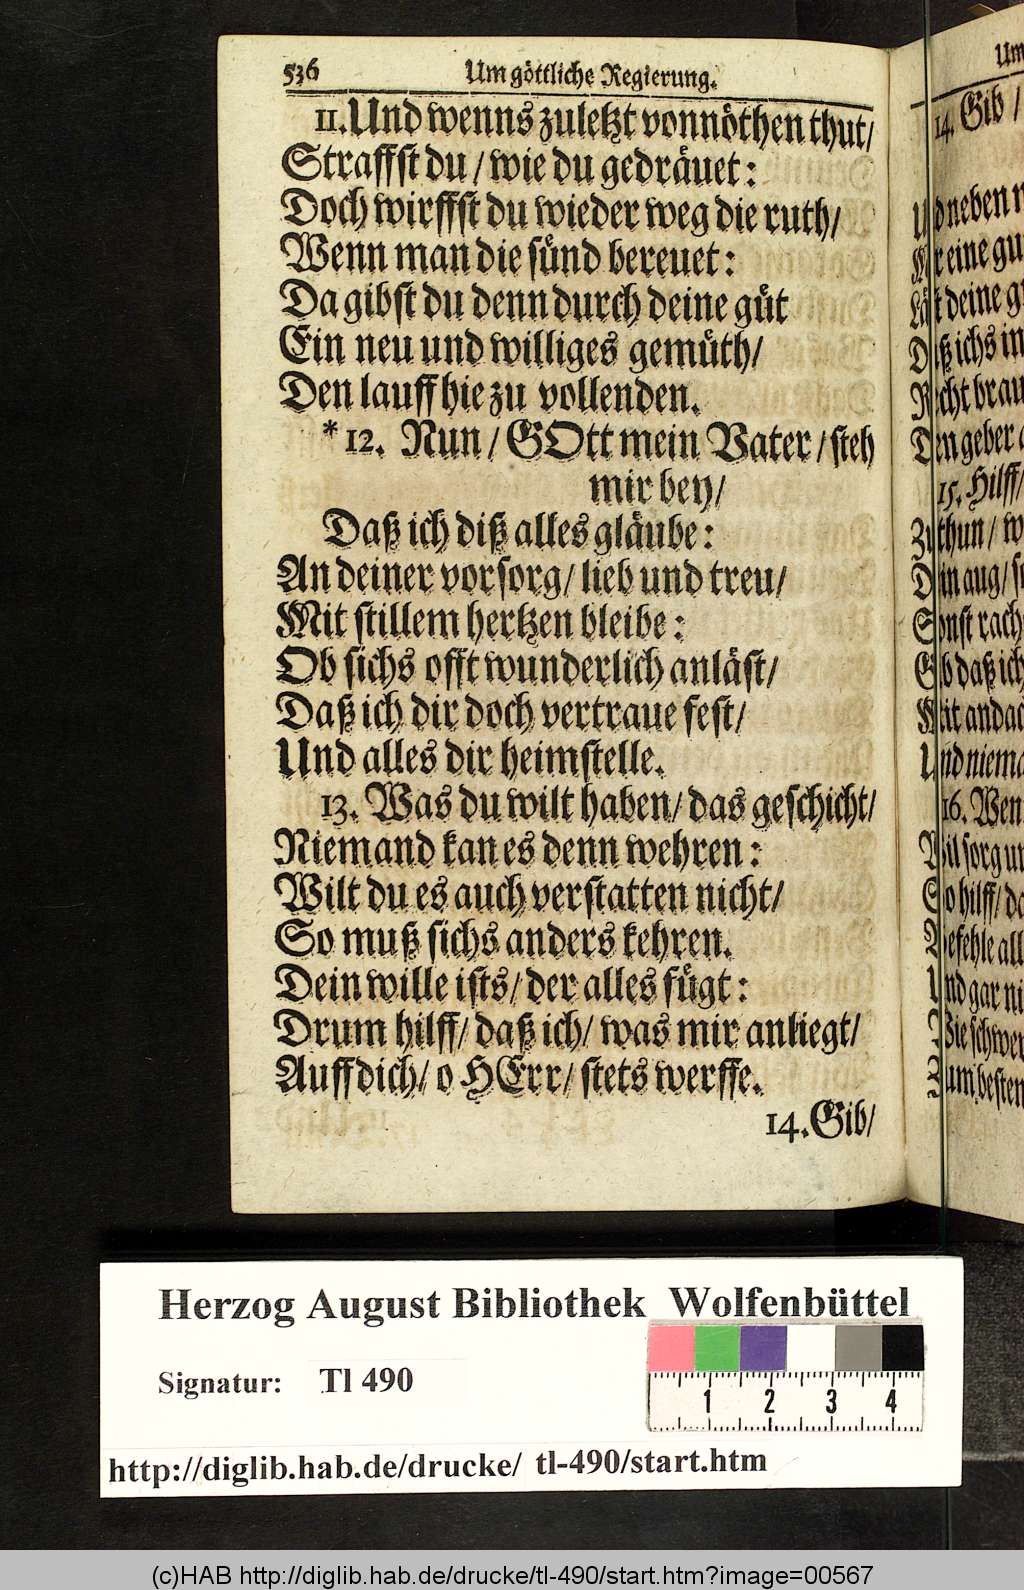 536 Um göttliche Regierung.
11. Und wenns zuletzt vonnöthen thut/
Straffst du/ wie du gedräuet:
Doch wirffst du wieder weg die ruth/
Wenn man die sünd bereuet:
Da gibst du denn durch deine güt
Ein neu und williges gemüth/
Den lauff hie zu vollenden.
*12. Nun/ GOtt mein Vater/ steh
mir bey/
Daß ich diß alles gläube:
An deiner vorsorg/ lieb und treu/
Mit stillem hertzen bleibe:
Ob sichs offt wunderlich anläst/
Daß ich dir doch vertraue fest/
Und alles dir heimstelle.
13. Was du wilt haben/ das geschicht/
Niemand kan es denn wehren:
Wilt du es auch verstatten nicht/
So muß sichs anders kehren.
Dein wille ists/ der alles fügt:
Drum hilff/ daß ich/ was mir anliegt/
Auff dich/ o HErr/ stets werffe.
14. Gib/
Um
14. Gib/
neben
eine
deine
ichs in
geber
15. Hilff/
thun/
aug/
daß ich
16. Wen
hilff/
gar
besten
Herzog August Bibliothek Wolfenbüttel
Signatur: Tl 490
1 2 3 4
http://diglib.hab.de/drucke/ tl-490/start.htm
(c)HAB http://diglib.hab.de/drucke/tl-490/start.htm?image=00567